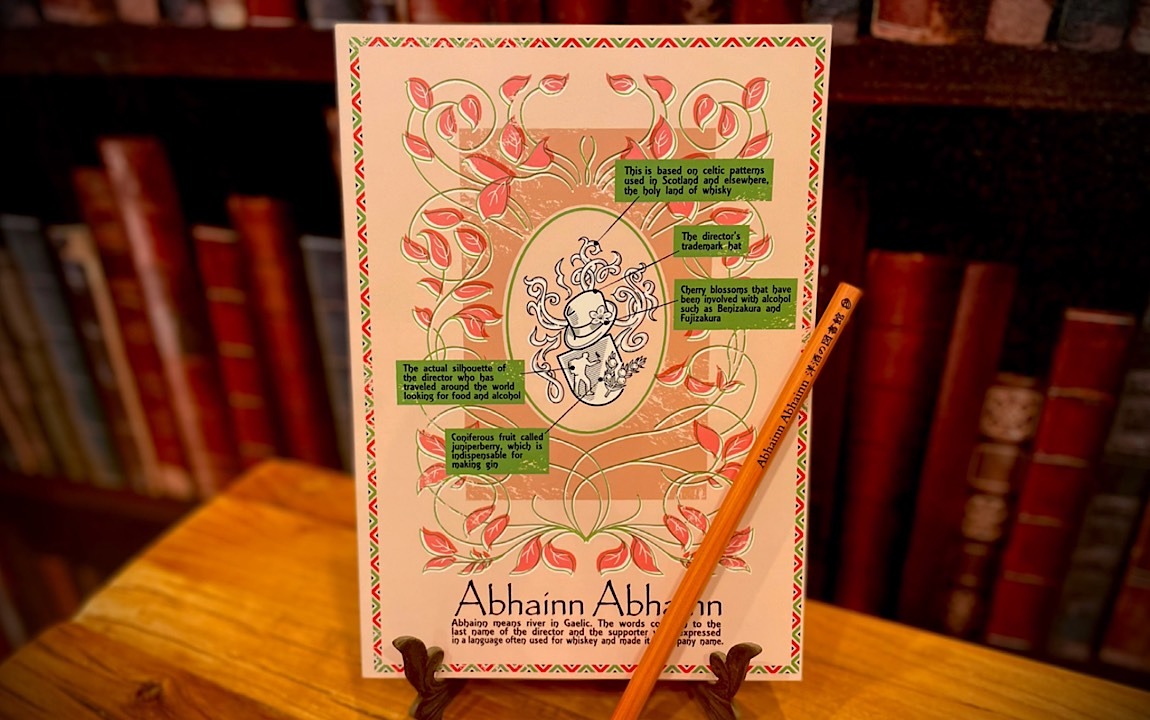 This is based on celtic patterns
used in Scotland and elsewhere,
the holy land of whisky
The director's
trademark hat
Cherry blossoms that have
been involved with alcohol
such as Benizakura and
Fujizakura
The actual silhouette of
the director who has
traveled around the world
looking for food and alcohol
Coniferous fruit called
juniperberry, which is
indispensable for
making gin
Abhainn Abhainn 洋酒の図書館
Abhainn Abhainn
Abhainn means river in Gaelic. The words to the
last name of the director and the supporter expressed
in a language often used for whiskey and made it company name.